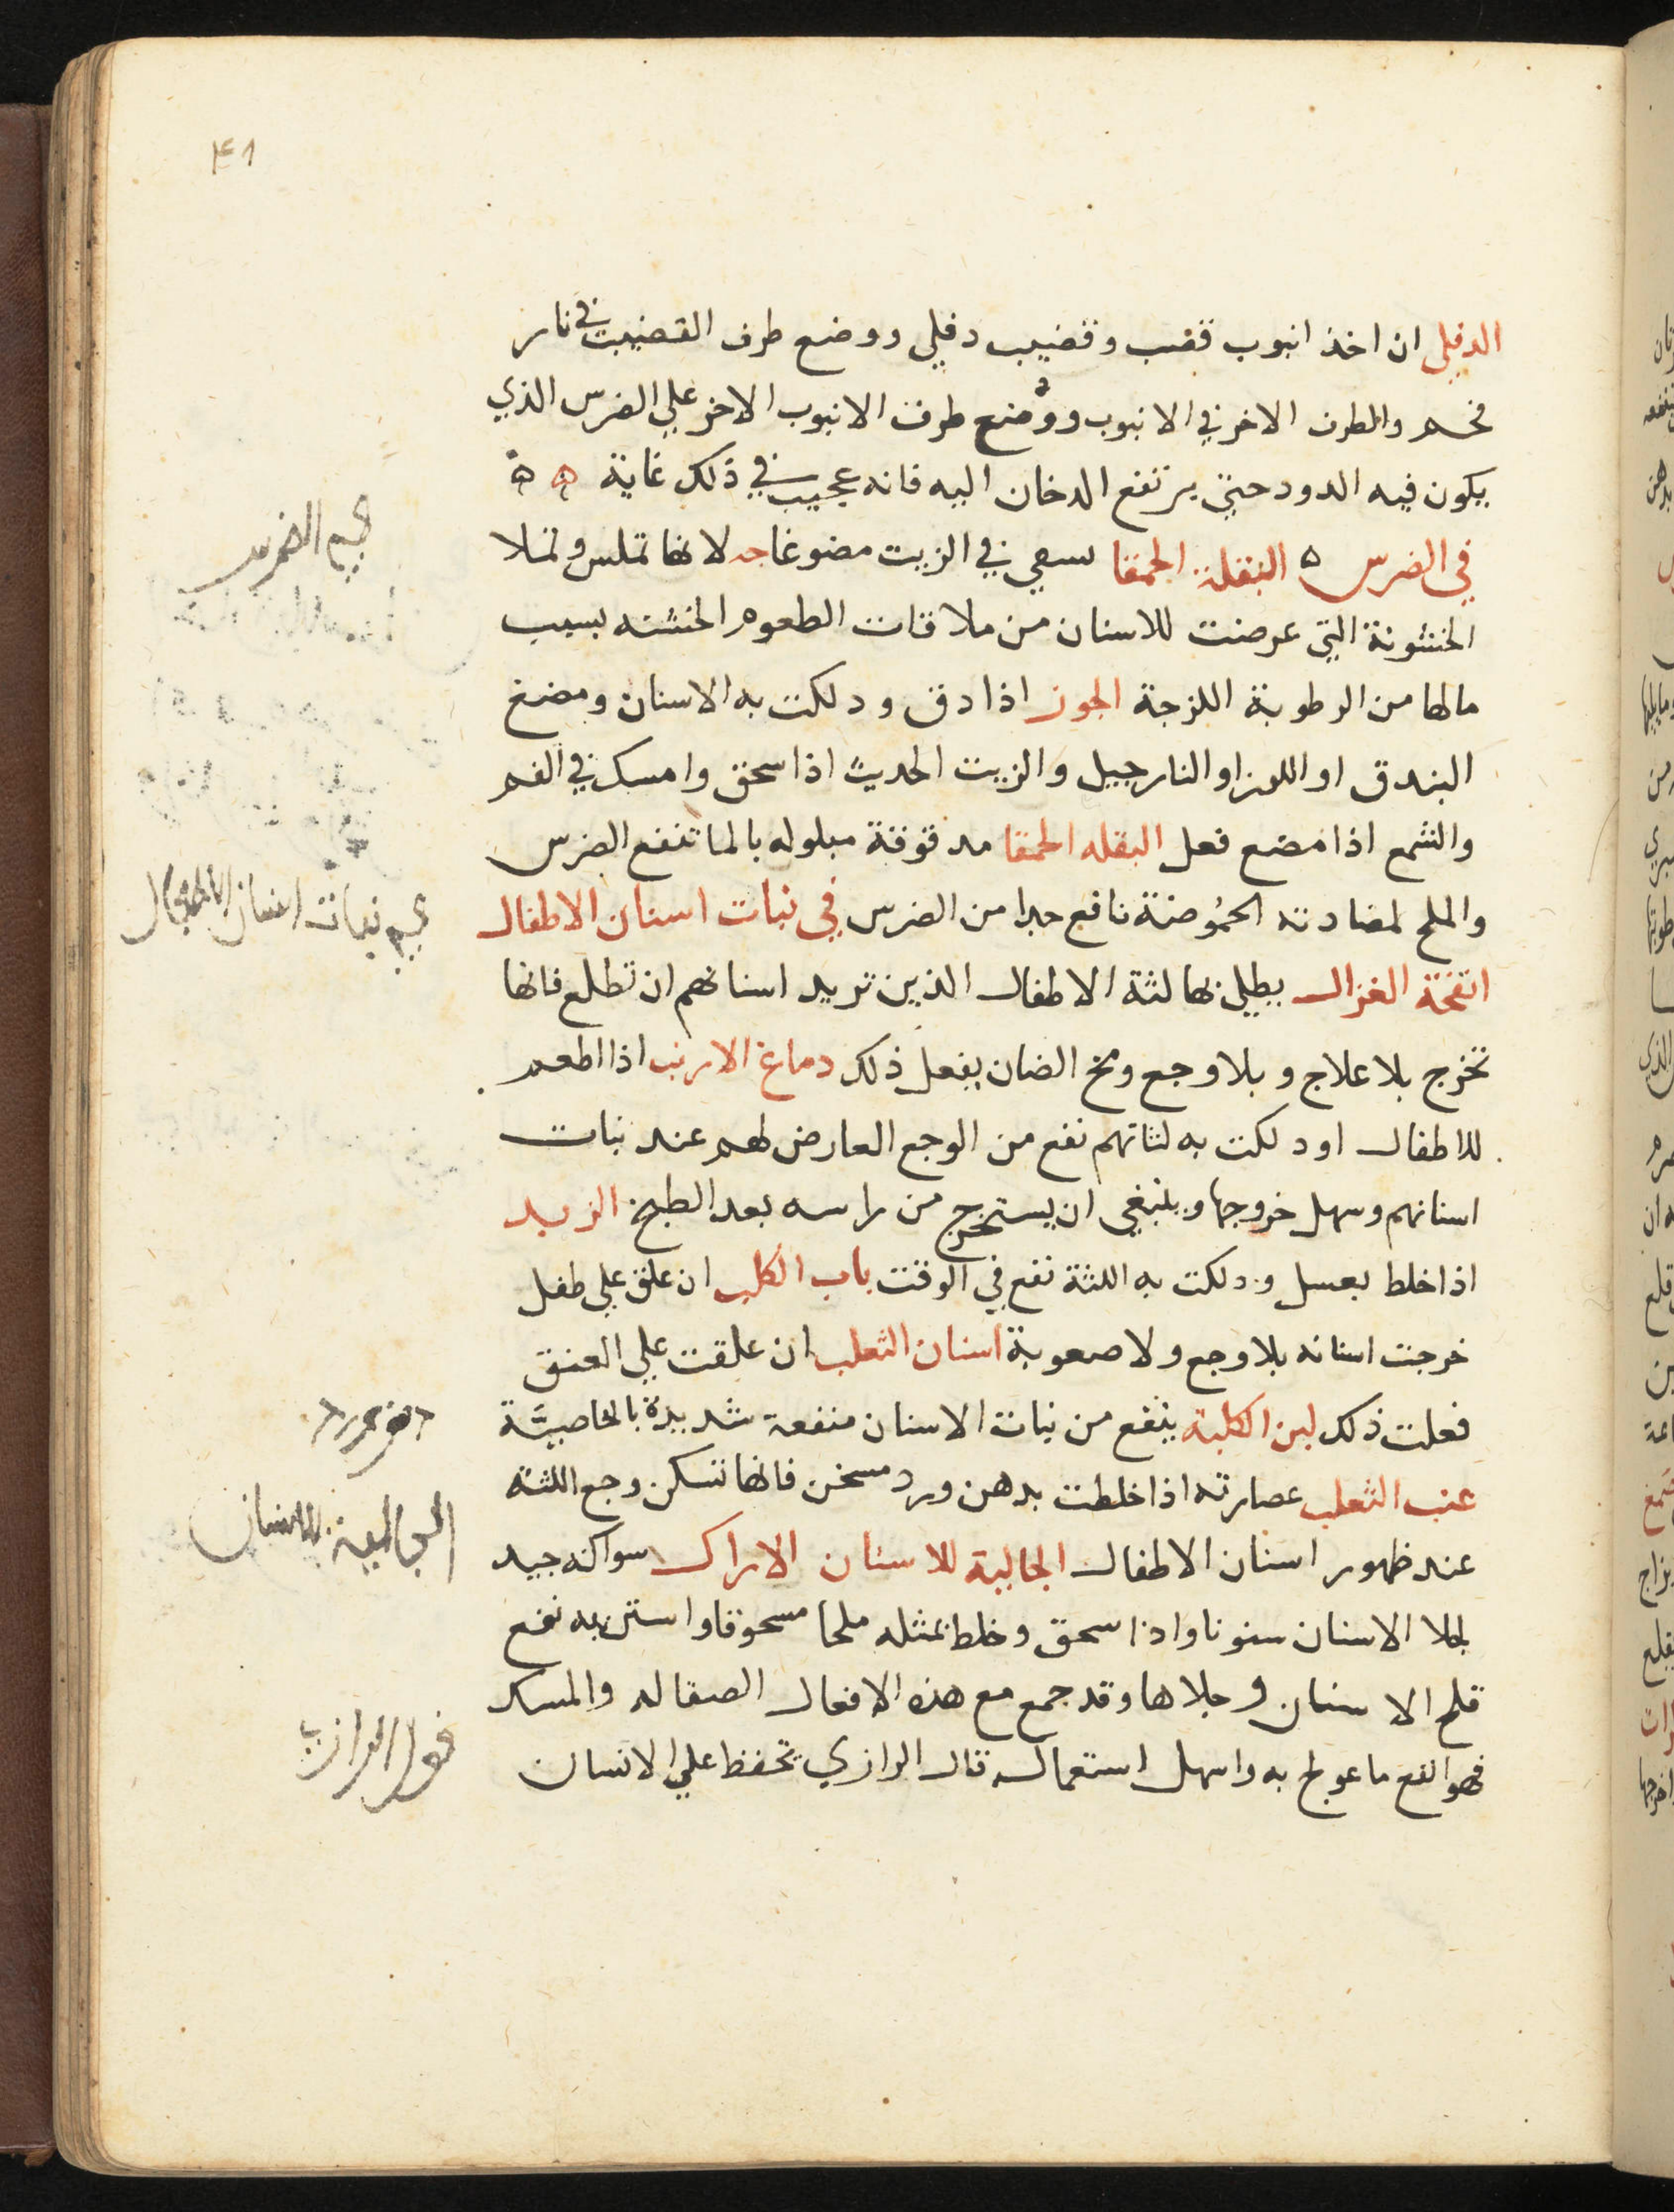 ٤١
الدفلي ان اخذ انبوب قصب وقضيب دفلي ووضع طرف القضيب في نار
فحم والطرف الاخر في الانبوب ووضع طرف الانبوب الاخر علي الضرس الذي
يكون فيه الدود حتي يرتفع الدخان اليه فانه عجيب في ذلك غاية ه ه
في الضرس ه البقلة الحمقا في الزيت لانها تملس وتملا
الخشونة التي عرضت للاسنان من ملاقات الطعوم الخشنه بسبب
مالها من الرطوبة اللزجة الجوز اذا دق ودلكت به الاسنان ومضغ
البندق او اللوز او النارجيل والزيت الحديث اذا سحق وامسك في الفم
والشمع اذا مضع فعل البقله الحمقا مدقوقة مبلوله بالما تنفع الضرس
والملح لمضادته الحموضة نافع جدا من الضرس في نبات اسنان الاطفال
انفحة الغزال يطلي بها لثة الاطفال الذين تريد اسنانهم ان تطلع فانها
تخرج بلا علاج وبلا وجع ومخ الضان يفعل ذلك دماغ الارنب اذا اطعم
للاطفال او دلكت به لثاتهم نفع من الوجع العارض لهم عند نبات
اسنانهم وسهل خروجها وينبغي ان يستخرج من راسه بعد الطبخ الزبد
اذا خلط بعسل ودلكت به اللثة نفع في الوقت ناب الكلب ان علق علي طفل
خرجت اسنانه بلا وجع ولا صعوبة اسنان الثعلب ان علقت علي العنق
فعلت ذلك لبن الكلبة ينفع من نبات الاسنان منفعة شديدة بالخاصيَّة
عنب الثعلب عصارته اذا خلطت بدهن ورد مسخن فانها تسكن وجع اللثة
عند ظهور اسنان الاطفال الجالية للاسنان الاراك سواكه جيد
لجلا الاسنان سنونا واذا سحق وخلط بمثله ملحا مسحوقا واستن به نفع
قلح الاسنان وجلاها وقد جمع مع هذه الافعال الصقاله والمسك
فهو انفع ما عولج به واسهل استعمال قال الرازي تحفظ علي الانسان
الضرس
نبات اسنان الاطفال
الجالية للاسنان
قول الرازي